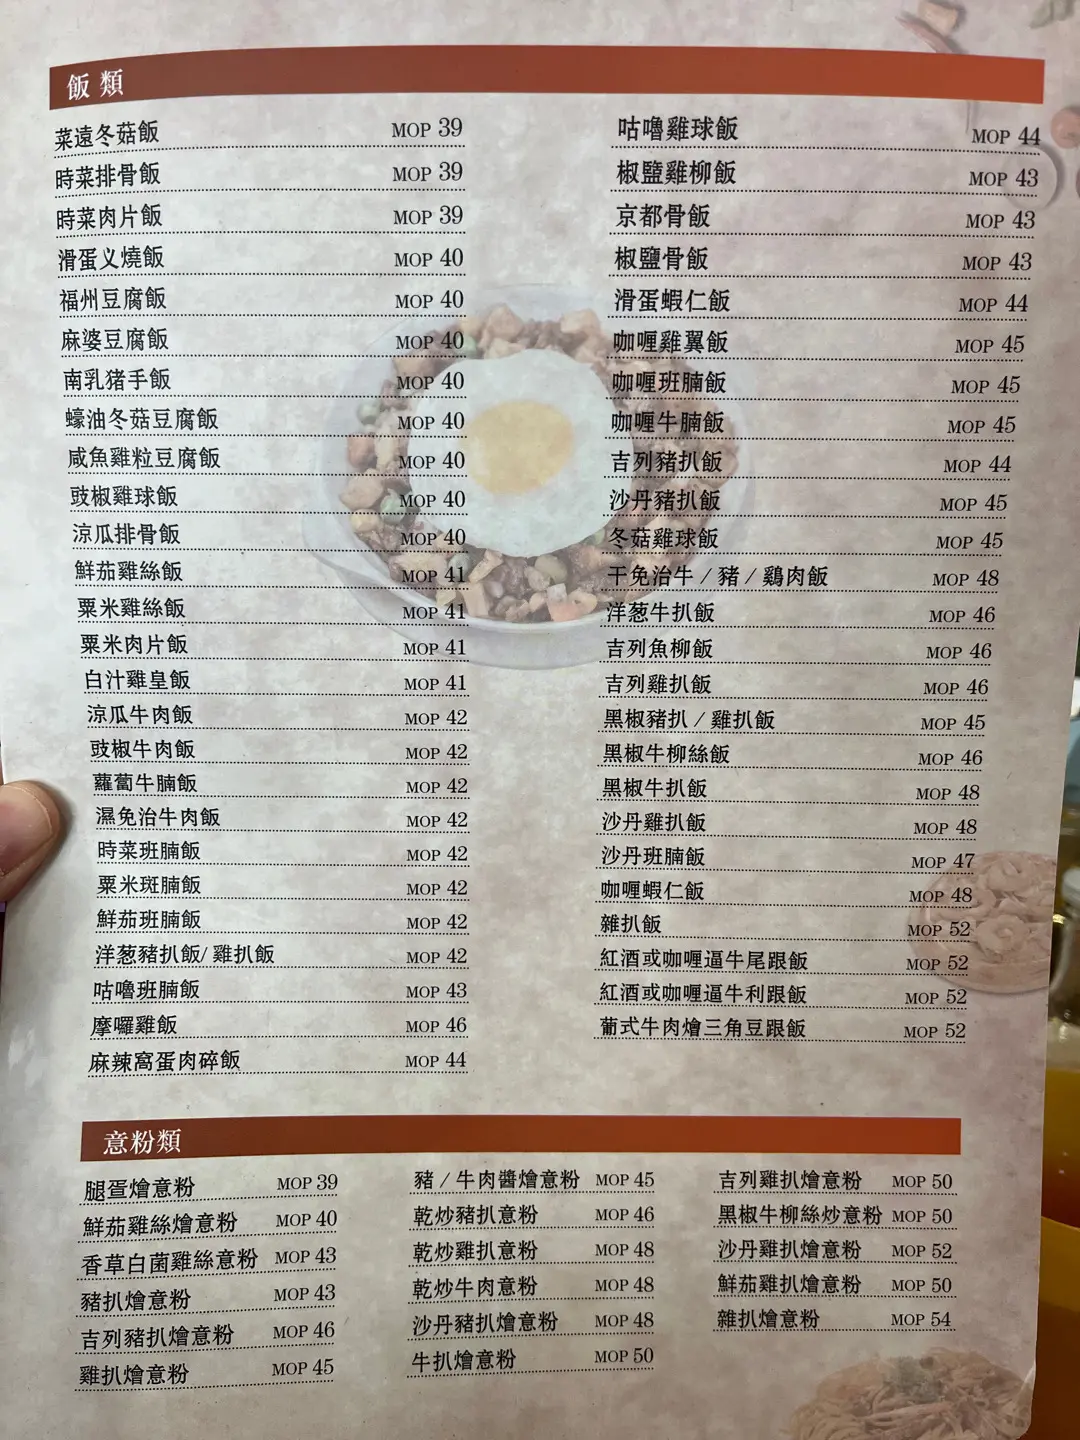 飯類
菜遠冬菇飯 MOP 39
時菜排骨飯 MOP 39
時菜肉片飯 MOP 39
滑蛋义燒飯 MOP 40
福州豆腐飯 MOP 40
麻婆豆腐飯 MOP 40
南乳猪手飯 MOP 40
蠔油冬菇豆腐飯 MOP 40
咸魚雞粒豆腐飯 MOP 40
豉椒雞球飯 MOP 40
涼瓜排骨飯 MOP 40
鮮茄雞絲飯 MOP 41
粟米雞絲飯 MOP 41
粟米肉片飯 MOP 41
白汁雞皇飯 MOP 41
涼瓜牛肉飯 MOP 42
豉椒牛肉飯 MOP 42
蘿蔔牛腩飯 MOP 42
濕免治牛肉飯 MOP 42
時菜班腩飯 MOP 42
粟米斑腩飯 MOP 42
鮮茄班腩飯 MOP 42
洋葱豬扒飯/ 雞扒飯 MOP 42
咕嚕班腩飯 MOP 43
摩囉雞飯 MOP 46
麻辣窩蛋肉碎飯 MOP 44
咕嚕雞球飯 MOP 44
椒鹽雞柳飯 MOP 43
京都骨飯 MOP 43
椒鹽骨飯 MOP 43
滑蛋蝦仁飯 MOP 44
咖喱雞翼飯 MOP 45
咖喱班腩飯 MOP 45
咖喱牛腩飯 MOP 45
吉列豬扒飯 MOP 44
沙丹豬扒飯 MOP 45
冬菇雞球飯 MOP 45
干免治牛 / 豬 / 鷄肉飯 MOP 48
洋葱牛扒飯 MOP 46
吉列魚柳飯 MOP 46
吉列雞扒飯 MOP 46
黑椒豬扒 / 雞扒飯 MOP 45
黑椒牛柳絲飯 MOP 46
黑椒牛扒飯 MOP 48
沙丹雞扒飯 MOP 48
沙丹班腩飯 MOP 47
咖喱蝦仁飯 MOP 48
雜扒飯 MOP 52
紅酒或咖喱逼牛尾跟飯 MOP 52
紅酒或咖喱逼牛利跟飯 MOP 52
葡式牛肉燴三角豆跟飯 MOP 52
意粉類
腿疍燴意粉 MOP 39
鮮茄雞絲燴意粉 MOP 40
香草白菌雞絲意粉 MOP 43
豬扒燴意粉 MOP 43
吉列豬扒燴意粉 MOP 46
雞扒燴意粉 MOP 45
豬 / 牛肉醬燴意粉 MOP 45
乾炒豬扒意粉 MOP 46
乾炒雞扒意粉 MOP 48
乾炒牛肉意粉 MOP 48
沙丹豬扒燴意粉 MOP 48
牛扒燴意粉 MOP 50
吉列雞扒燴意粉 MOP 50
黑椒牛柳絲炒意粉 MOP 50
沙丹雞扒燴意粉 MOP 52
鮮茄雞扒燴意粉 MOP 50
雜扒燴意粉 MOP 54